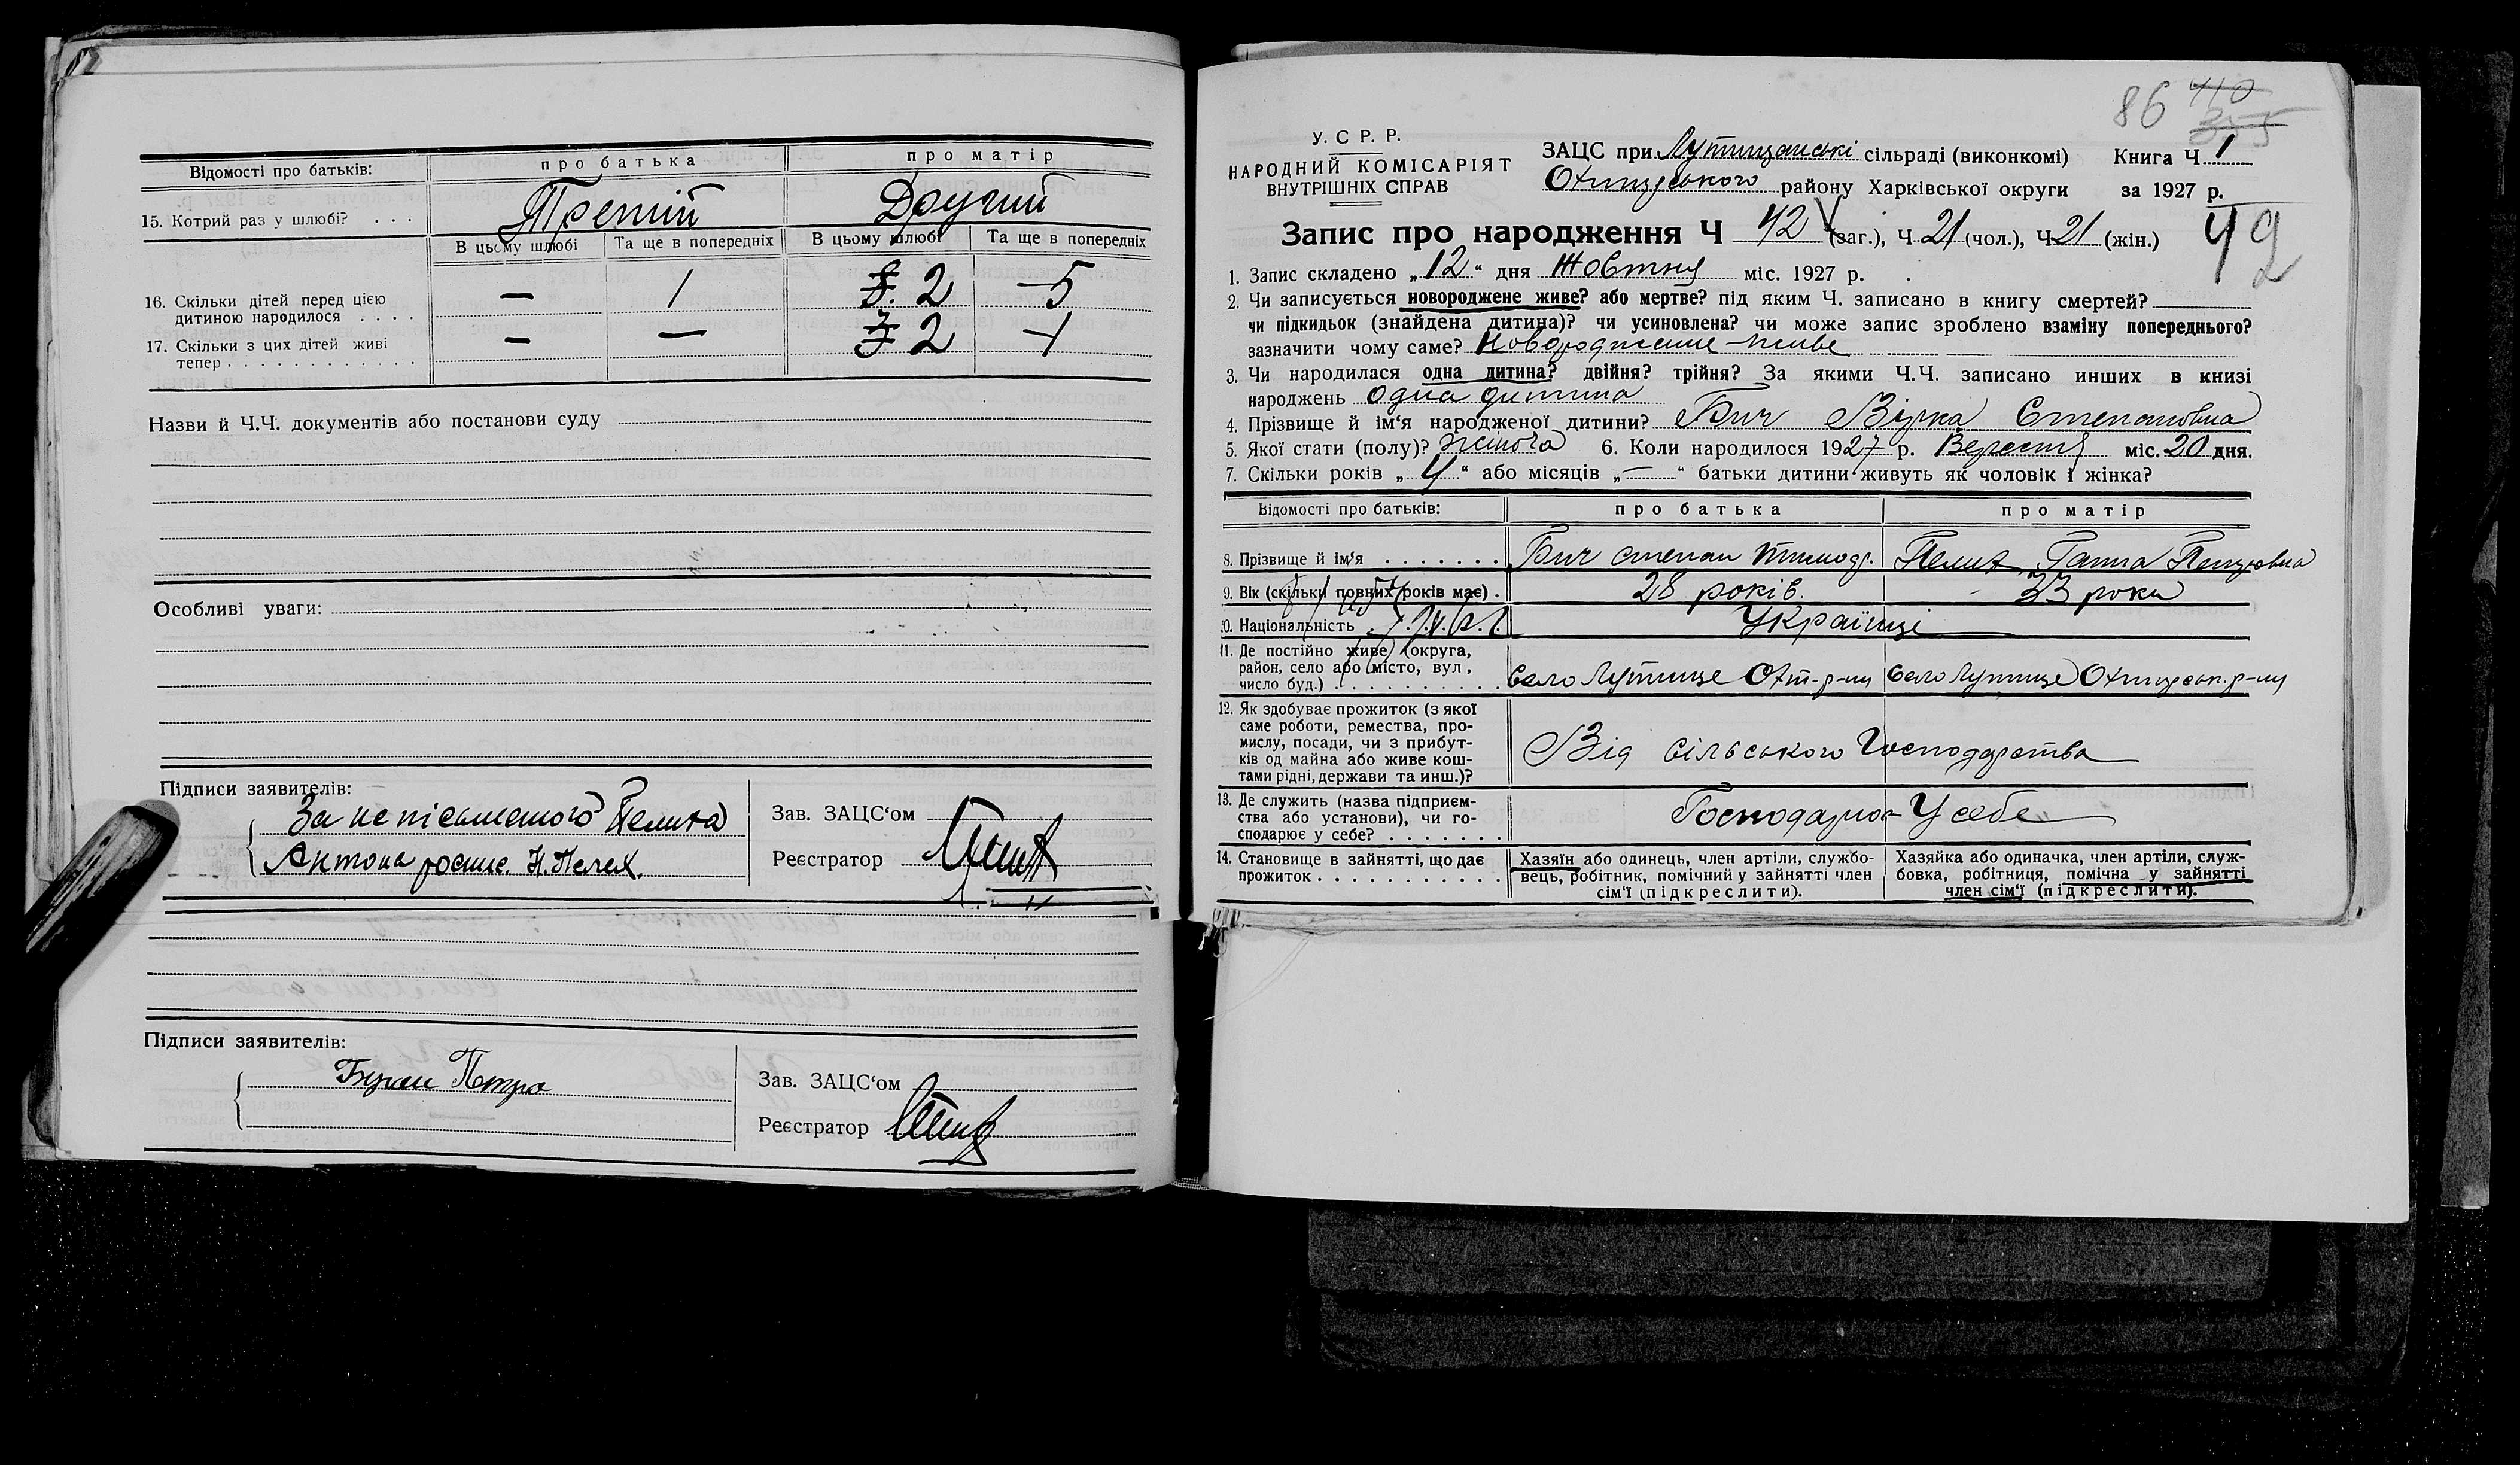 Відомості про батьків: про батька про матір
15. Котрий раз у шлюбі? . . . Третій Другий
В цьому шлюбі Та ще в попередніх В цьому шлюбі Та ще в попередніх
16. Скільки дітей перед цією
дитиною народилося . . . . — 1 3. 2 5
17. Скільки з цих дітей живі
тепер . . . . . . . . . . . . . — — 3 2 1
Назви й Ч.Ч. документів або постанови суду
Особливі уваги:
Підписи заявителів:
За непісьменого
Антона розпис. Н. Пелех.
Зав. ЗАЦС‘ом
Реєстратор
Підписи заявителів:
Петро
Зав. ЗАЦС‘ом
Реєстратор
86 110
355
У. С. Р. Р.
НАРОДНИЙ КОМІСАРІЯТ
ВНУТРІШНІХ СПРАВ
ЗАЦС при Лутищанські сільраді (виконкомі) Книга Ч 1
Охтирського району Харківської округи за 1927 р.
Запис про народження Ч 42 (заг.), Ч 21 (чол.), Ч 21 (жін.) 42
1. Запис складено „12“ дня Жовтня міс. 1927 р.
2. Чи записується новороджене живе? або мертве? під яким Ч. записано в книгу смертей?
чи підкидьок (знайдена дитина)? чи усиновлена? чи може запис зроблено взаміну попереднього?
зазначити чому саме? Новороджене-живе
3. Чи народилася одна дитина? двійня? трійня? За якими Ч.Ч. записано инших в книзі
народжень одна дитина
4. Прізвище й ім‘я народженої дитини? Бич Вірка Степановна
5. Якої стати (полу)? жіноча 6. Коли народилося 1927 р. Вересня міс. 20 дня.
7. Скільки років „4“ або місяців „—“ батьки дитини живуть як чоловік і жінка?
Відомості про батьків: про батька про матір
8. Прізвище й ім‘я . . . . . . . Бич Степан Тимоф. Ганна Петровна
9. Вік (скільки повних років має) . 28 років. 33 роки
10. Національність Українці
11. Де постійно живе (округа,
район, село або місто, вул.,
число буд.) . . . . . . . . . . село Лутище Охт-р-ну село Лутище Охтирськ. р-ну
12. Як здобуває прожиток (з якої
саме роботи, ремества, про-
мислу, посади, чи з прибут-
ків од майна або живе кош-
тами рідні, держави та инш.)? Від сільського Господарства
13. Де служить (назва підприєм-
ства або установи), чи го-
сподарює у себе? . . . . . . . Господарює У себе
14. Становище в зайнятті, що дає
прожиток . . . . . . . . . . .
Хазяїн або одинець, член артіли, службо-
вець, робітник, помічний у зайнятті член
сім‘ї (підкреслити).
Хазяйка або одиначка, член артіли, служ-
бовка, робітниця, помічна у зайнятті
член сім‘ї (підкреслити).